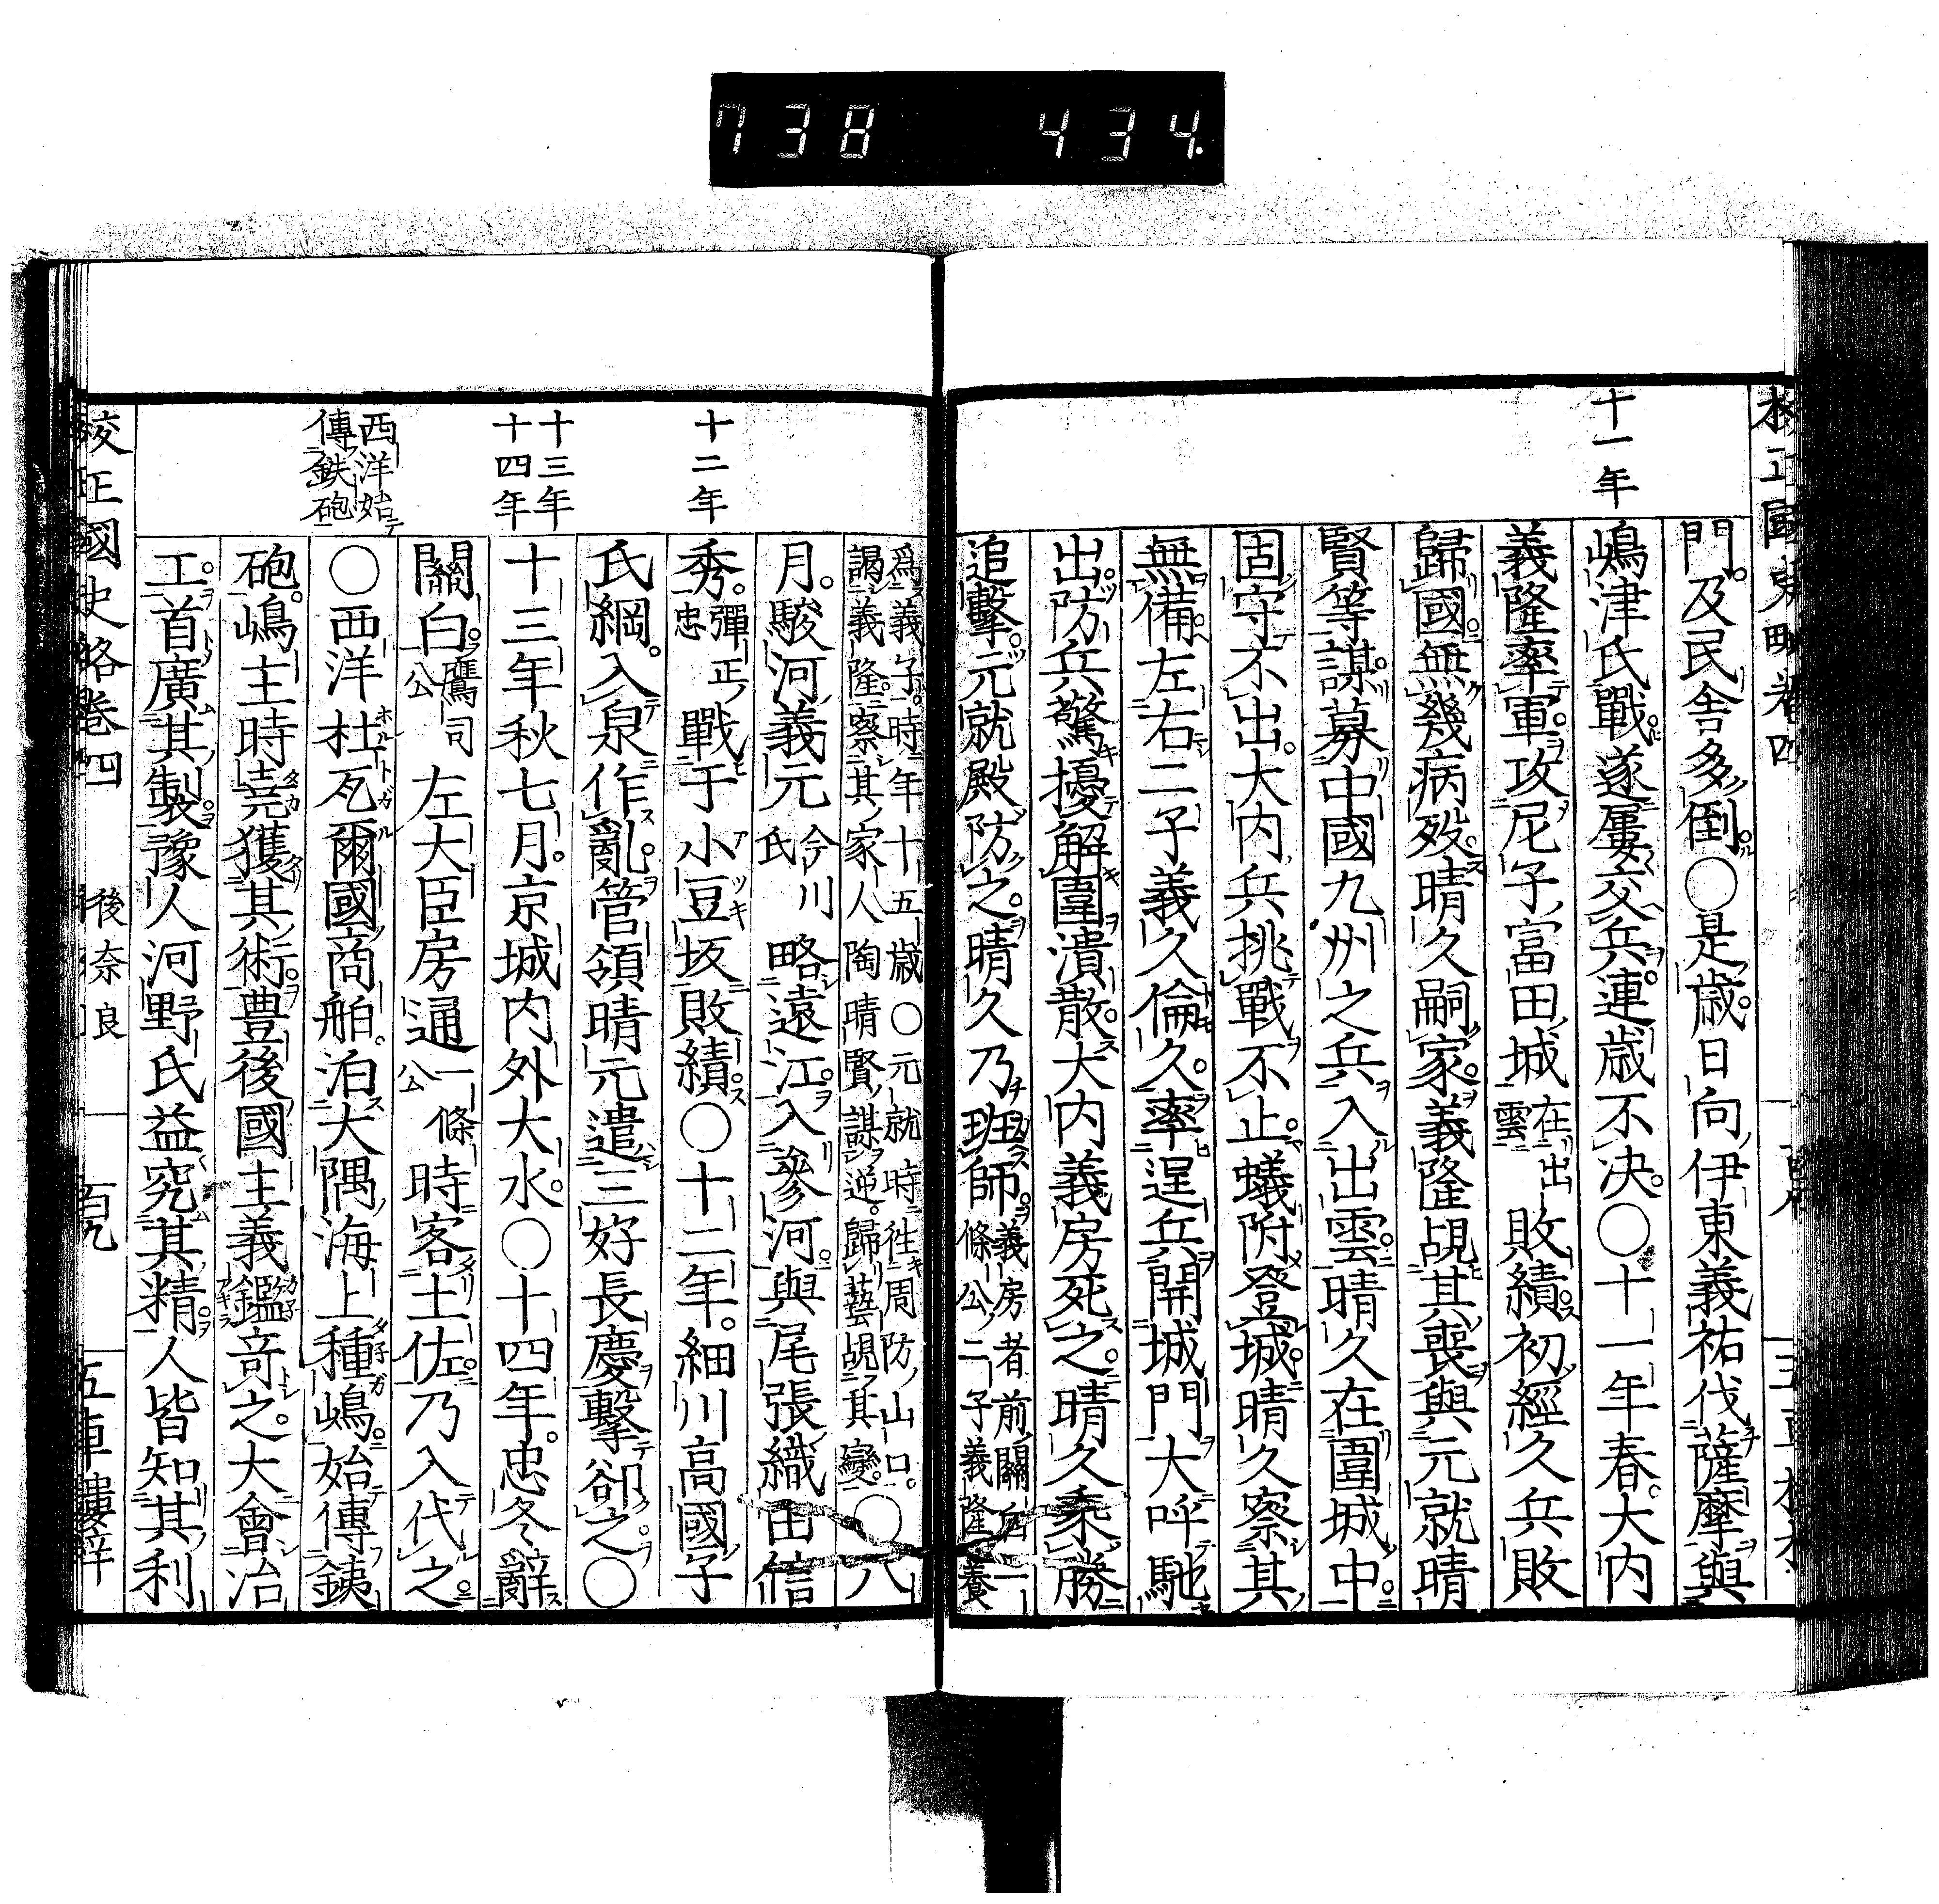 738 434.
十一年
門。及民舎多倒。〇是歳。日向伊東義祐伐薩摩與
嶋津氏戰。遂屢交兵。連歳不決。〇十一年春。大内
義隆率軍。攻尼子富田城 在出雲 敗績。初經久兵敗
歸國。無幾病歿。晴久嗣家。義隆覘其喪。與元就晴
賢等謀。募中國九州之兵。入出雲。晴久在圍城中。
固守不出。大内兵挑戰不止。蟻附登城。晴久察其
無備。左右二子義久倫久。率逞兵。開城門。大呼馳
出。防兵驚擾。解圍潰散。大内義房死之。晴久乘勝
追擊。元就殿防之。晴久乃班師。 義房者前關白一條公二子義隆養
爲義子。時年十五歳〇元就時往周防山口。謁義隆。察其家人陶晴賢謀逆。歸藝覘其變。 〇八
月。駿河義元 今川氏 略遠江。入參河。與尾張織田信
秀。 彈正忠 戰于小豆坂。敗績。〇十二年。細川高國子
氏綱。入泉作亂。管領晴元遣三好長慶擊郤之。〇
十三年秋七月。京城内外大水。〇十四年。忠冬辭
關白。 鷹司公 左大臣房通 一條公 時客土佐。乃入代之。
〇西洋杜瓦爾國商舶。泊大隅海上種嶋。始傳銕
砲。嶋主時堯獲其術。豊後國主義鑑奇之。大會冶
工。首廣其製。豫人河野氏益究其精。人皆知其利
十二年
十三年
十四年
西洋始
傳鉄砲
校正國史略卷四 後奈良 百九 五車樓梓